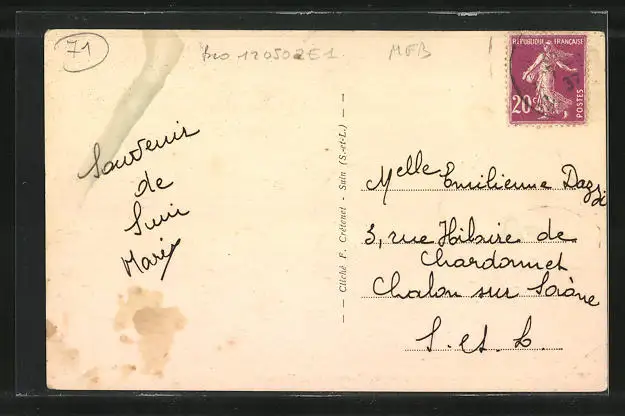 71
MFB
RÉPUBLIQUE FRANÇAISE
20c
POSTES
37
Souvenir
de
Suin
Marix
Cliché F. Crétenet - Suin (S.-et-L.)
Melle Emilienne
3, rue Hilaire de
Chardonnet
Chalon sur Saône
S. et L.